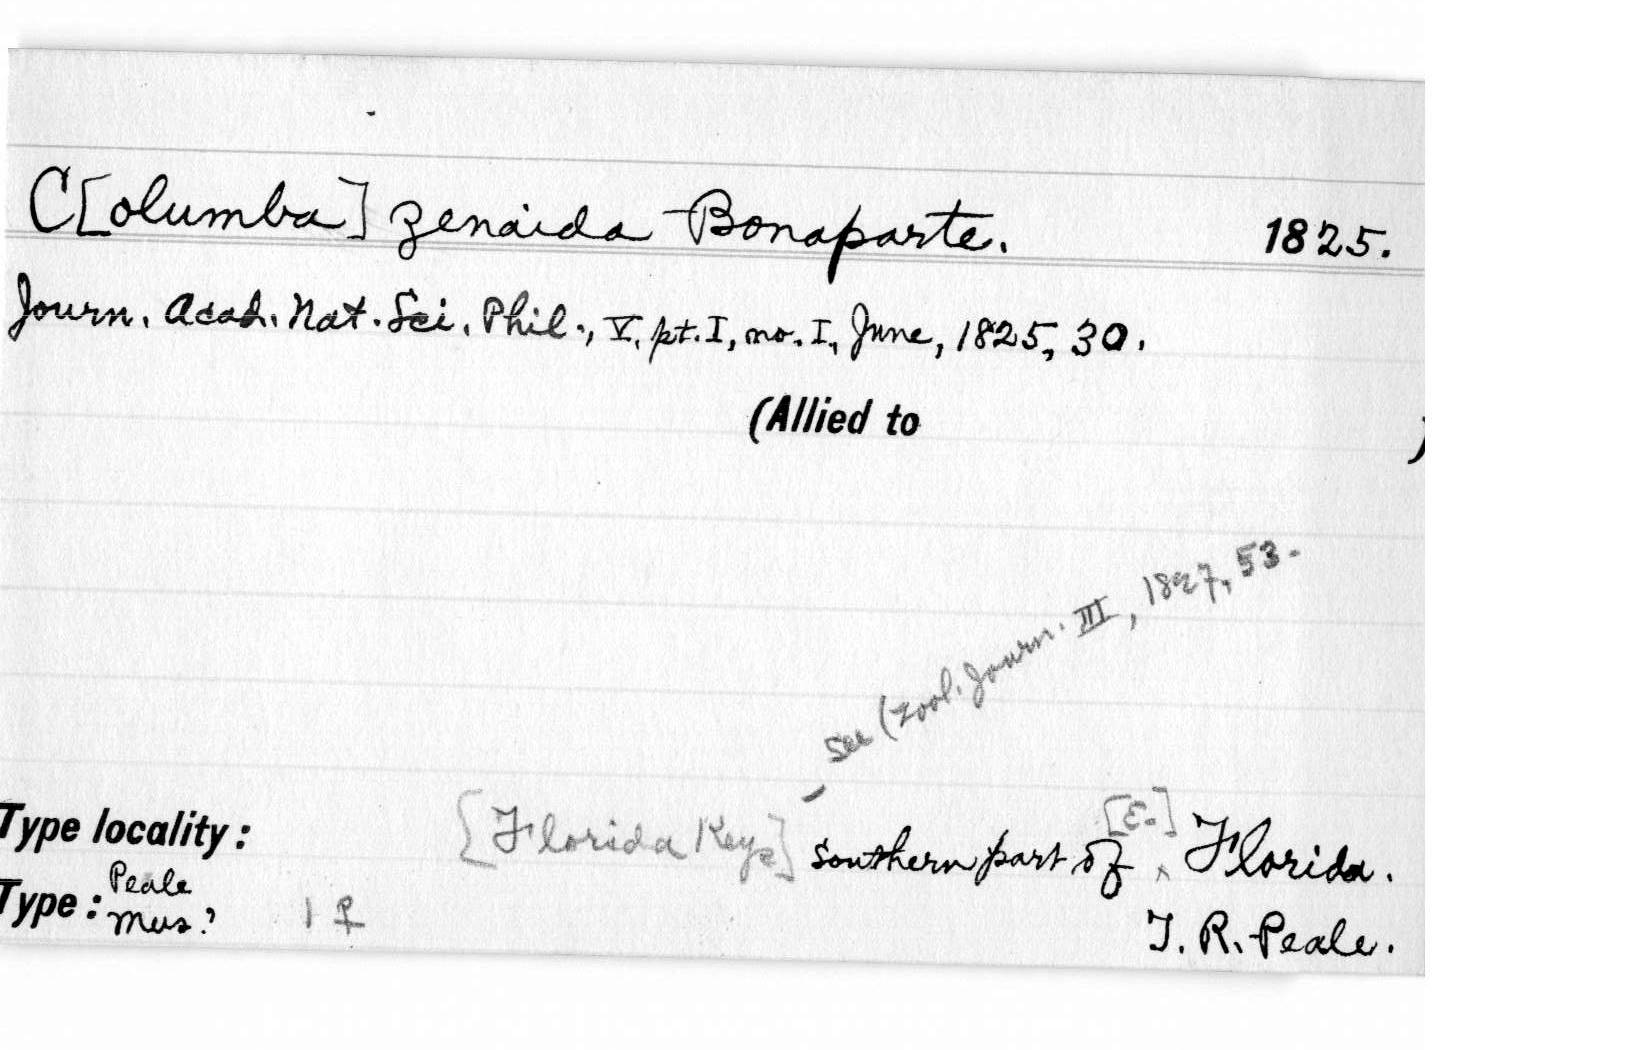 C[olumba] zenaida Bonaparte. 1825.
Journ. Acad. Nat. Sci. Phil., V, pt. I, no. I, June, 1825, 30.
(Allied to )
see (Zool. Journ. III, 1827, 53.
Type locality: [Florida Keys] Southern part of [E.] Florida.
Type: Peale Mus.? 1 ♀ T. R. Peale.